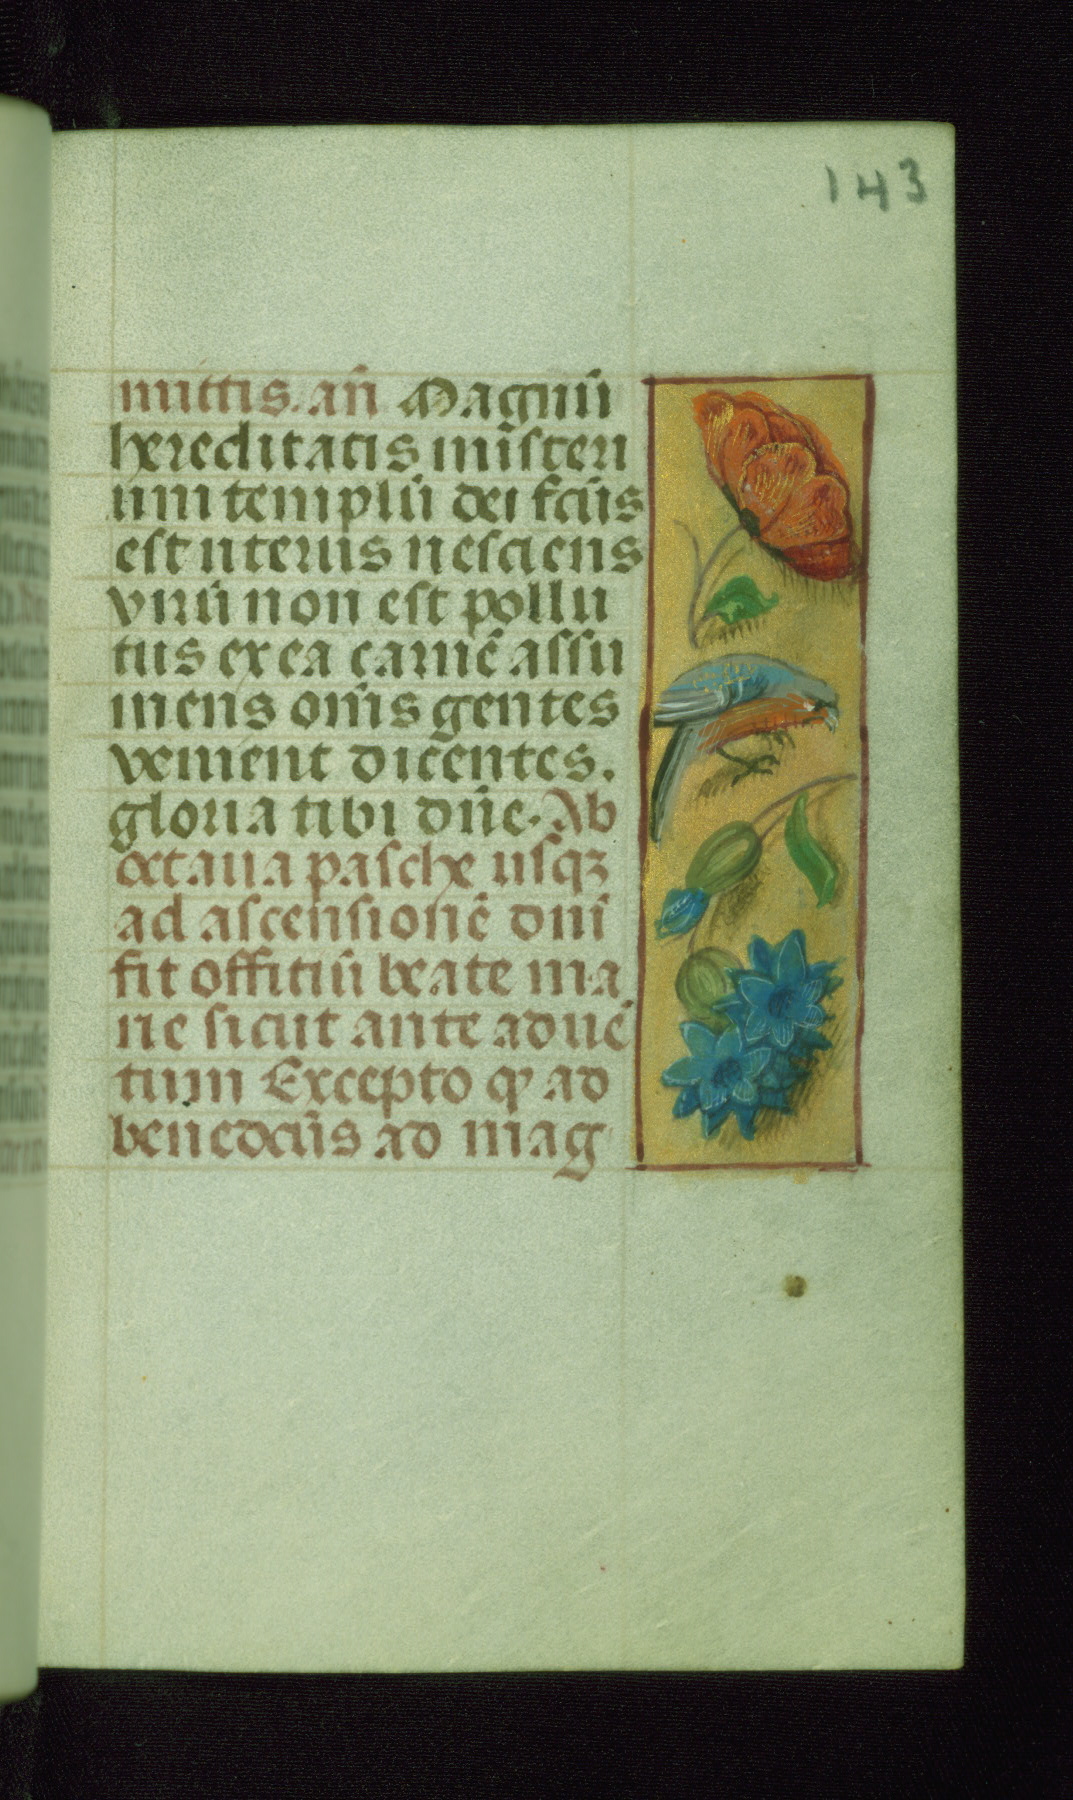 143
mittis. añ Magnū
hereditatis mīsteri
um templū dei fc̄ūs
est uterus nesciens
virū non est pollu
tus ex ea carnē assu
mens om̄s gentes
venient dicentes.
gloria tibi dn̄e. Ab
octaua pasche usqꝫ
ad ascensionē dnī
fit offitiū beate ma
rie sicut ante aduē
tum Excepto ꝙ ad
benedc̄ūs ad mag